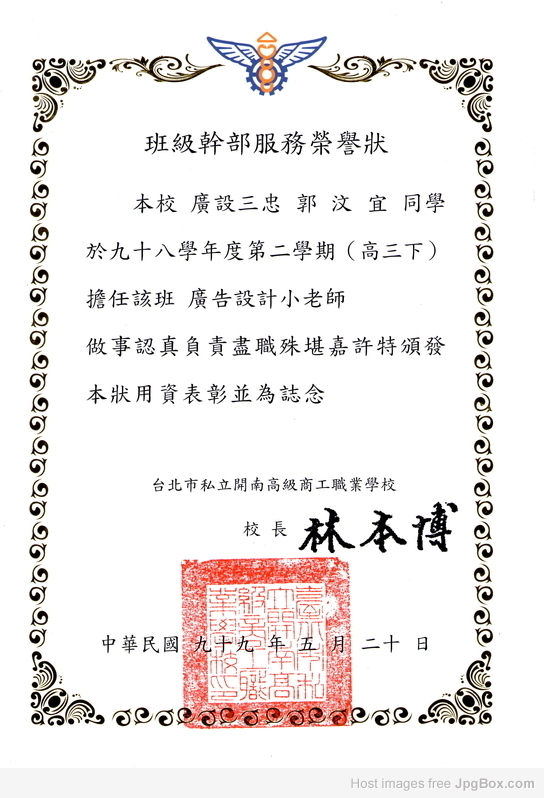 班級幹部服務榮譽狀
本校 廣設三忠 郭 汶 宜 同學
於九十八學年度第二學期（高三下）
擔任該班 廣告設計小老師
做事認真負責盡職殊堪嘉許特頒發
本狀用資表彰並為誌念
台北市私立開南高級商工職業學校
校 長 林本博
中華民國 九十九 年 五 月 二十 日
Host images free JpgBox.com